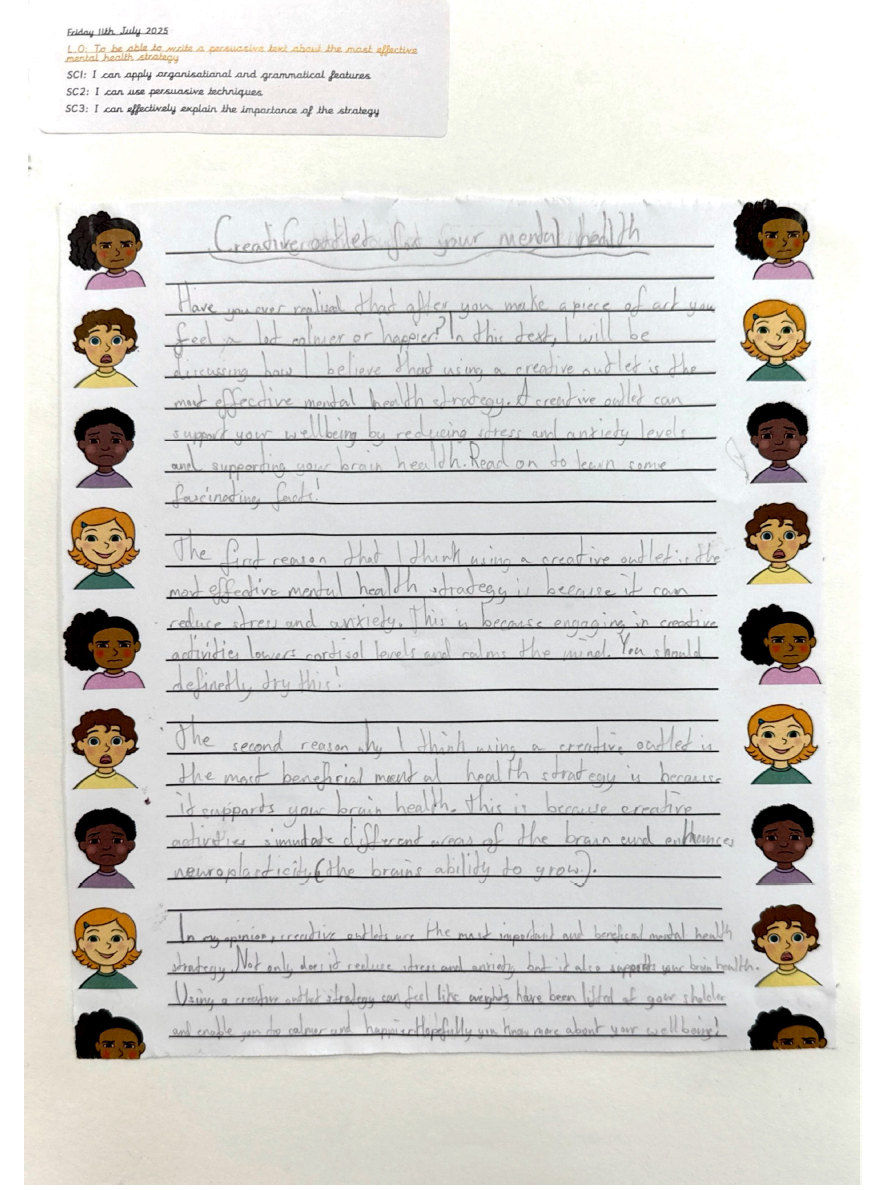 Friday 11th July 2025
L.O: To be able to write a persuasive text about the most effective
mental health strategy
SC1: I can apply organisational and grammatical features
SC2: I can use persuasive techniques
SC3: I can effectively explain the importance of the strategy
Creative outlet for your mental health
Have you ever realised that after you make a piece of art you
feel a lot calmer or happier? In this text, I will be
discussing how I believe that using a creative outlet is the
most effective mental health strategy. A creative outlet can
support your wellbeing by reducing stress and anxiety levels
and supporting your brain health. Read on to learn some
fascinating facts!
The first reason that I think using a creative outlet is the
most effective mental health strategy is because it can
reduce stress and anxiety. This is because engaging in creative
activities lowers cortisol levels and calms the mind. You should
definetly try this!
The second reason why I think using a creative outlet is
the most beneficial mental health strategy is because
it supports your brain health. This is because creative
activities simulate different areas of the brain and enhances
neuroplasticity (the brains ability to grow).
In my opinion, creative outlets are the most important and beneficial mental health
strategy. Not only does it reduce stress and anxiety but it also supports your brain health.
Using a creative outlet strategy can feel like weights have been lifted of your sholder
and enable you to calmer and happier. Hopefully you know more about your wellbeing!